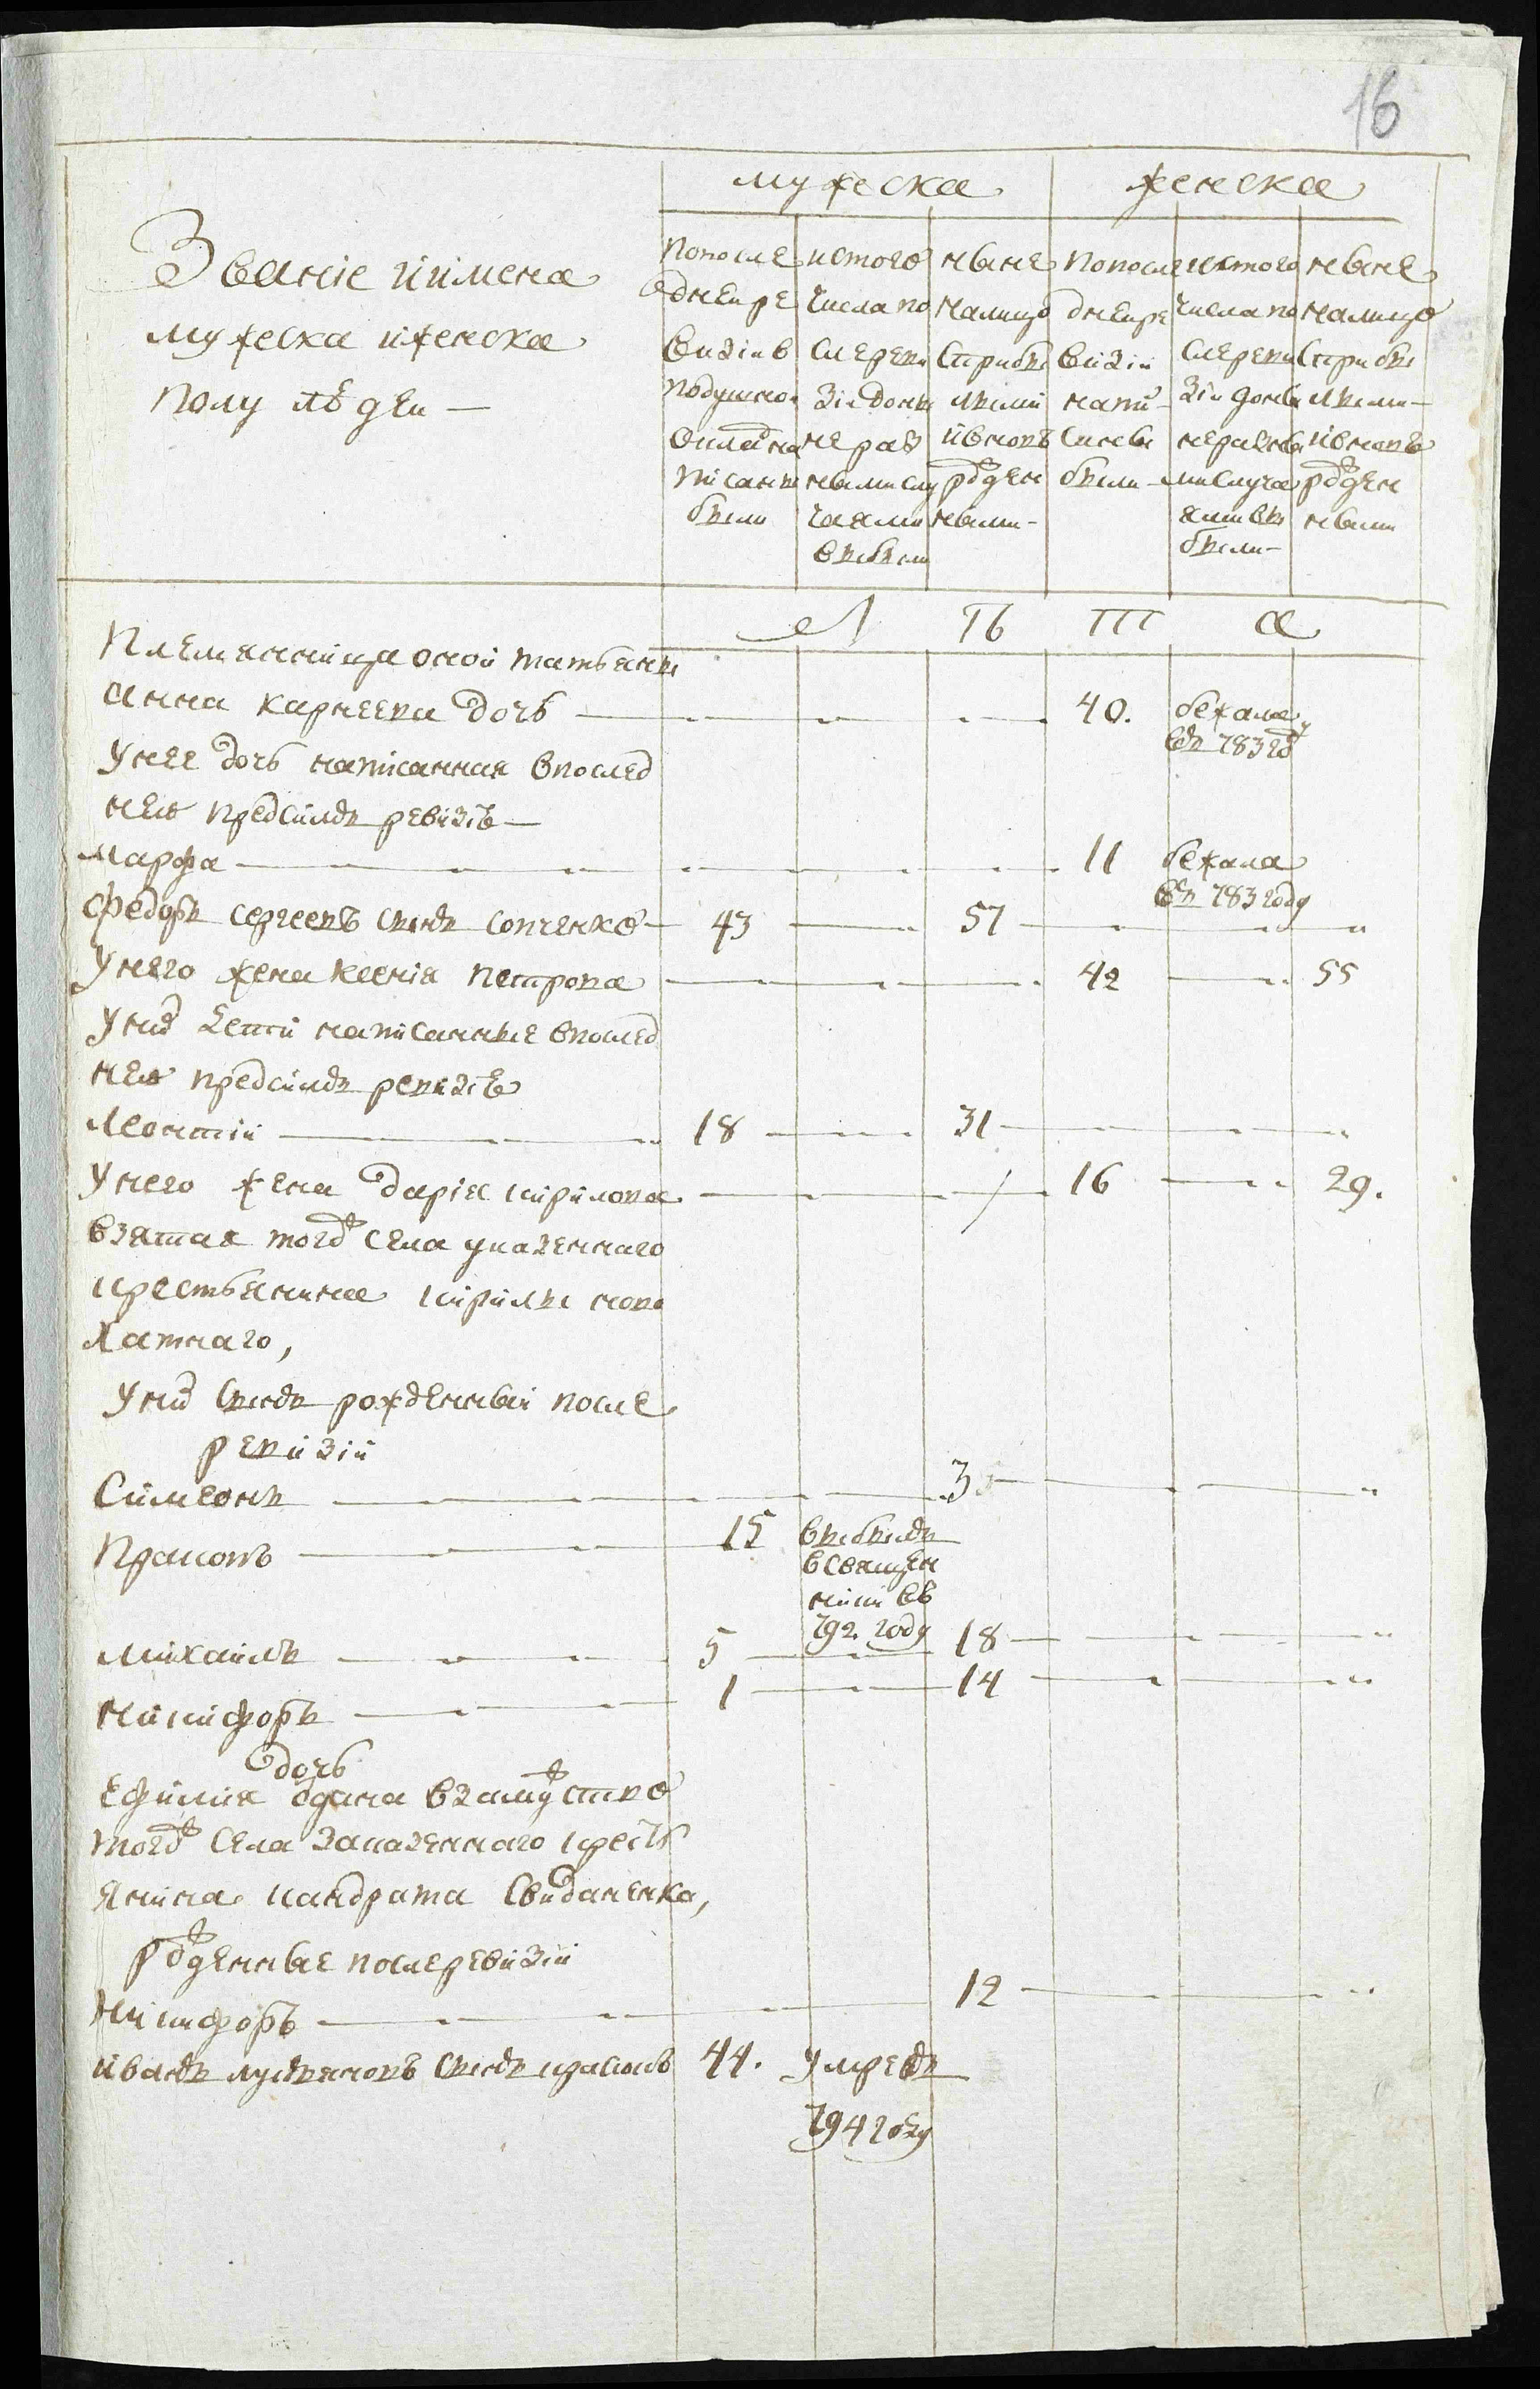 16
мужеска женска
Званіе иимена
мужеска иженска
полу людеи —
попосле днеире визіи в подушно окладъ написаны были
истого числа по сле реви зіи донынѣ не раз ными слу чаями выбыли
ныне налицо стрибы лыми ивновь рожден ными -
попосле днеире визіи напи- саны были -
изтого числа по сле реви зіи доны неразны ми случа ями вы были -
ныне налицо стрибы лыми - ивновь рожден ными
Л Ѣ Т А
Племянница оной татьяны
анна карнеева дочь 40. бежала
въ 783 год
Унее дочь написанная впослед
ней предсимъ ревизіѣ —
марфа 11 бежала
въ 783 году
федоръ сергеевъ сынъ сопченко 43 57
Унего жена ксенія петрова 42 55
Уних дети написанные впослед
ней предсимъ ревизіѣ
леонтіи 18 31
Унего жена дарія кирилова 16 29.
взятая тогож села указенного
крестьянина кирилы ново
хатнаго,
Уних сынъ рожденный после
ревизіи
Симеонъ 3
Пракопъ 15 выбылъ
всвящен
ники въ
792. году
михаилъ 5 18
никифоръ 1 14
дочь
ефимия одана взамужство
тогож села заказенного крестъ
янина кандрата свиданенка,
рожденные послеревизіи
никифоръ 12
иванъ лукъяновъ сынъ красовъ 44. умревъ
794 году